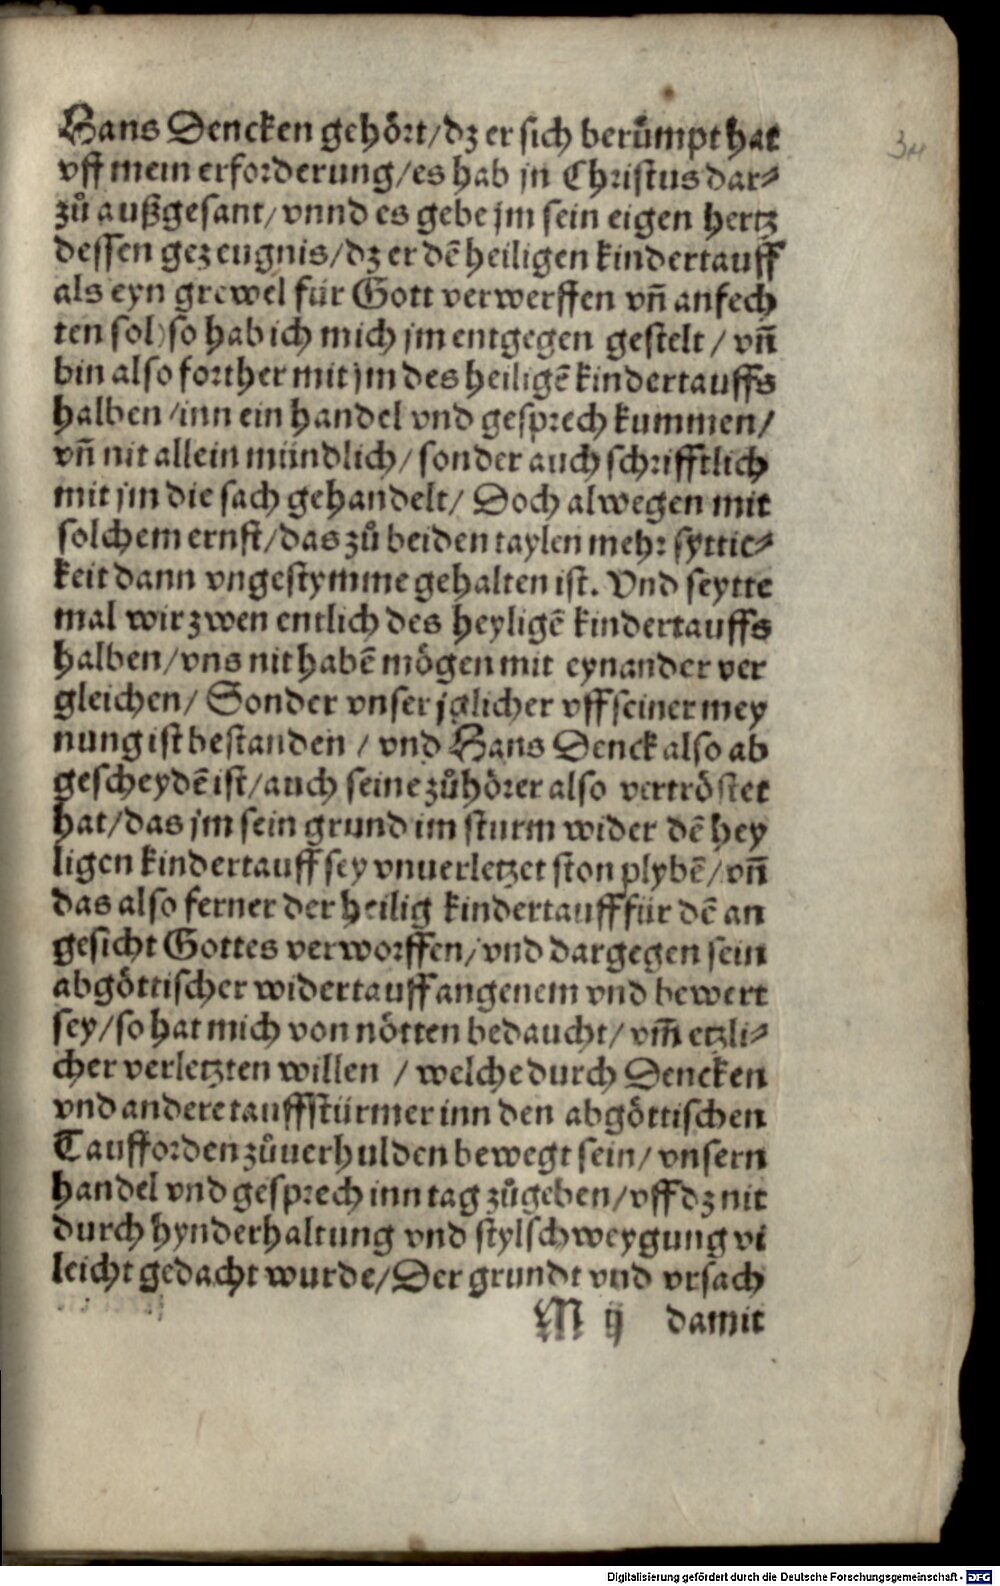 Hans Dencken gehört/dz er sich berůmpt hat
vff mein erforderung/es hab jn Christus dar⸗
zů außgesant/vnnd es gebe jm sein eigen hertz
dessen gezeugnis/dz er dē heiligen kindertauff
als eyn grewel für Gott verwerffen vn̄ anfech
ten sol) so hab ich mich jm entgegen gestelt/vn̄
bin also forther mit jm des heiligē kindertauffs
halben/inn ein handel vnd gesprech kummen/
vn̄ nit allein mündlich/sonder auch schrifftlich
mit jm die sach gehandelt/Doch alwegen mit
solchem ernst/das zů beiden taylen mehr syttic⸗
keit dann vngestymme gehalten ist. Vnd seytte
mal wir zwen entlich des heyligē kindertauffs
halben/vns nit habē mögen mit eynander ver
gleichen/Sonder vnser jglicher vff seiner mey
nung ist bestanden/vnd Hans Denck also ab
gescheydē ist/auch seine zůhörer also vertröstet
hat/das jm sein grund im sturm wider dē hey
ligen kindertauff sey vnuerletzet ston plybē/vn̄
das also ferner der heilig kindertauff für dē an
gesicht Gottes verworffen/vnd dargegen sein
abgöttischer widertauff angenem vnd bewert
sey/so hat mich von nötten bedaucht/vm̄ etzli⸗
cher verletzten willen/welche durch Dencken
vnd andere tauffstürmer inn den abgöttischen
Taufforden zůuerhulden bewegt sein/vnsern
handel vnd gesprech inn tag zůgeben/vff dz nit
durch hynderhaltung vnd stylschweygung vi
leicht gedacht wurde/Der grundt vnd vrsach
M ij damit
34
Digitalisierung gefördert durch die Deutsche Forschungsgemeinschaft - DFG